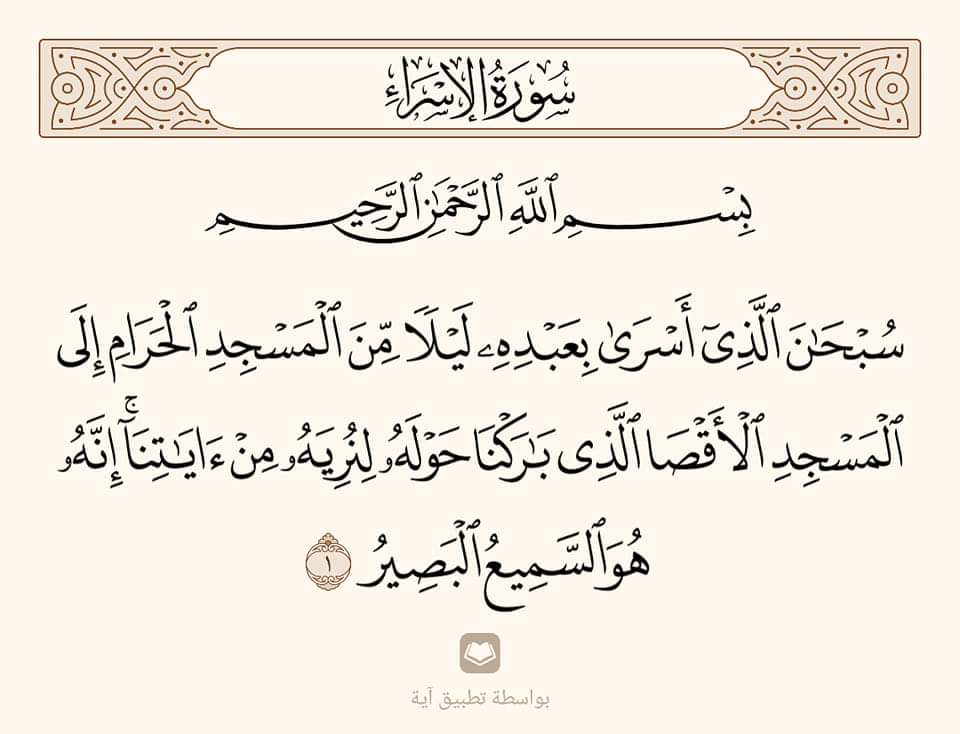 سُورَةُ الإِسْرَاءِ
بِسْمِ ٱللَّهِ ٱلرَّحْمَٰنِ ٱلرَّحِيمِ
سُبْحَٰنَ ٱلَّذِىٓ أَسْرَىٰ بِعَبْدِهِۦ لَيْلًا مِّنَ ٱلْمَسْجِدِ ٱلْحَرَامِ إِلَى
ٱلْمَسْجِدِ ٱلْأَقْصَا ٱلَّذِى بَٰرَكْنَا حَوْلَهُۥ لِنُرِيَهُۥ مِنْ ءَايَٰتِنَآ ۚ إِنَّهُۥ
هُوَ ٱلسَّمِيعُ ٱلْبَصِيرُ ١
بواسطة تطبيق آية